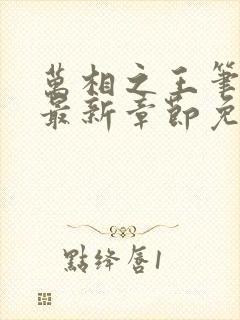 萬相之王筆
最新章節免
點絳唇1